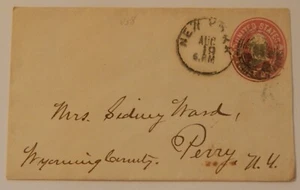 NEW YORK
AUG
18
6 PM
UNITED STATES
Mrs. Sidney Ward,
Perry
Wyoming County,
N.Y.